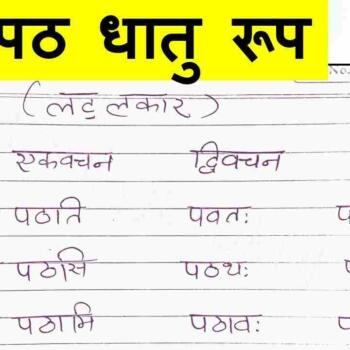 पठ धातु रूप
(लट् लकार)
एकवचन द्विवचन
पठति पठतः
पठसि पठथः
पठामि पठावः